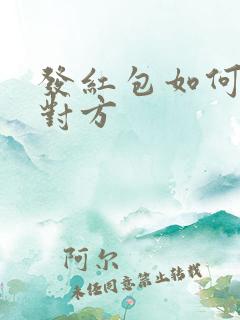 發紅包如何
對方
阿尔
未经同意禁止转载